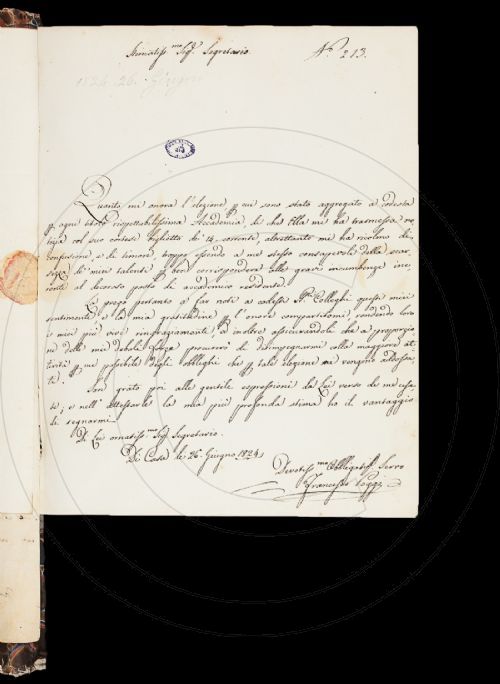 Stimatiss.mo Sig.r Segretario
N.o 213.
1824. 26. Giugno
Quanto mi onora l'elezione p cui sono stato aggregato a codesta
p ogni titolo rispettabilissima Accademia, di che Ella mi ha trasmessa no-
tizia col suo cortese biglietto di 14 corrente, altrettanto mi ha ricolmo di
confusione, e di timore, troppo essendo a me stesso consapevole della scar-
sezza di miei talenti p ben corrispondere alle gravi incumbenze ine-
renti al decoroso posto di accademico residente.
La prego pertanto a far noti a codesti Colleghi questi miei
sentimenti e la mia gratitudine p l'onore compartitomi, rendendo loro
i miei più vivi ringraziamenti, ed inoltre assicurandoli che a proporzio-
ne delle mie deboli forze procurerò di disimpegnarmi colla maggiore at-
tività p me possibile degli obblighi che p tale elezione mi vengono addossa-
ti.
Son grato poi alle gentili espressioni da Lei verso di me usa-
te; e nell'attestarle la mia più profonda stima ho il vantaggio
di segnarmi
Di Lei ornatiss.mo Sig.r Segretario.
Di Casa li 26. Giugno 1824
Devotiss.mo Obbligatiss. Servo
Francesco Poggi